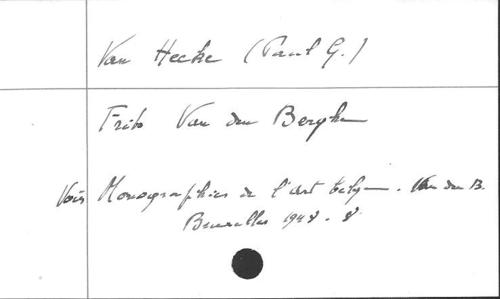 Van Hecke (Paul G.)
Frits Van den Berghe
Voir Monographies de l'art belge. Van den B.
Bruxelles 1948. 8°.